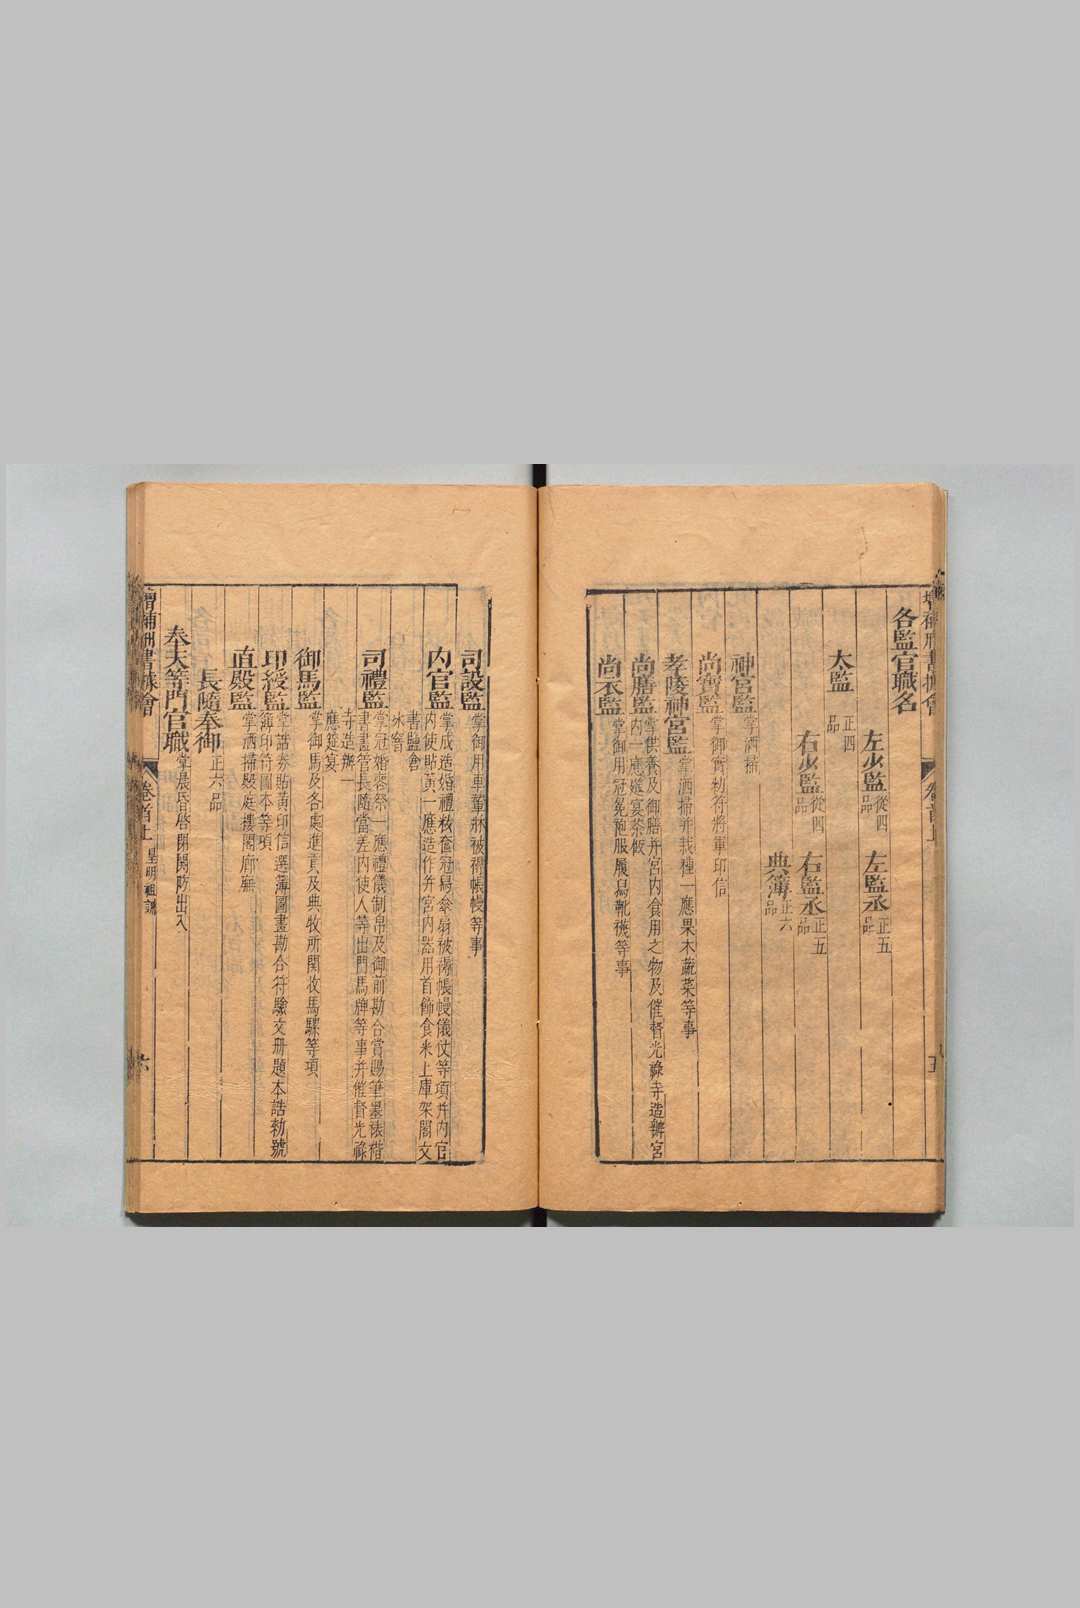 各監官職名
太監正四品
左少監從四品 左監丞正五品
右少監從四品 右監丞正五品
典簿正六品
神宮監掌洒掃
尚寶監掌御寶勑符將軍印信
孝陵神宮監掌洒掃并栽種一應果木蔬菜等事
尚膳監掌供養及御膳并宮内食用之物及催督光祿寺造辦宮
内一應筵宴茶飯
尚衣監掌御用冠冕袍服履舄靴襪等事
司設監掌御用車輦牀被褥帳幔等事
内官監掌成造婚禮粧奩冠舄傘扇被褥帳幔儀仗等項并内官
内使貼黄一應造作并宮内器用首飾食米上庫架閣文
書鹽倉
氷窨
司禮監掌冠婚喪祭一應禮儀制帛及御前勘合賞賜筆墨裱褙
書畫管長隨當差内使人等出門馬牌等事并催督光祿
寺造辦一
應筵宴
御馬監掌御馬及各處進貢及典牧所関收馬騾等項
印綬監掌誥券貼黄印信選簿圖畫勘合符驗文册題本誥勑號
簿印符圖本等項
直殿監掌洒掃殿庭樓閣廊廡
長隨奉御正六品
奉天等門官職掌晨昏啓閉関防出入
卷首上 皇明祖訓 六